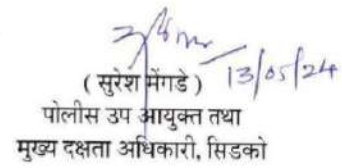 13/05/24
( सुरेश मेंगडे )
पोलीस उप आयुक्त तथा
मुख्य दक्षता अधिकारी, सिडको